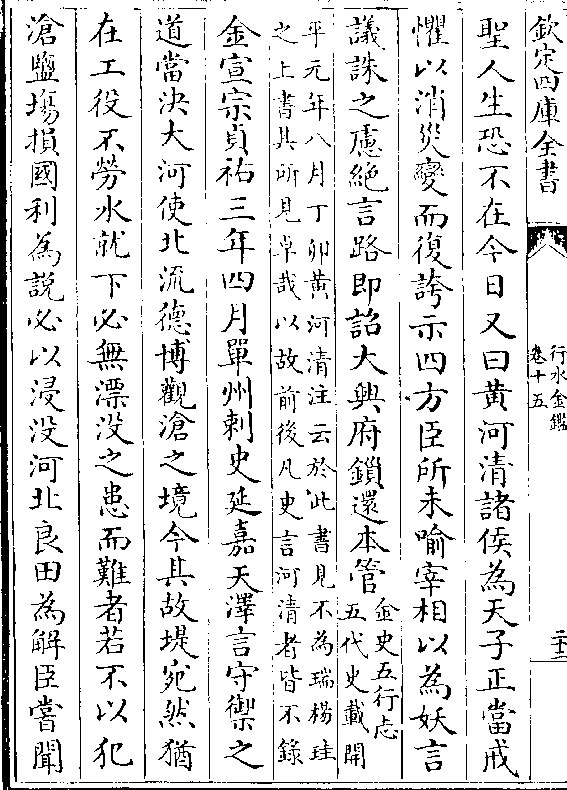 欽定四庫全書
行水金鑑
卷十五
二十二
聖人生恐不在今日又曰黄河清諸侯為天子正當戒
懼以消災變而復誇示四方臣所未喻宰相以為妖言
議誅之慮絶言路即詔大興府鎖還本管
金史五行志
五代史載開
平元年八月丁卯黄河清注云於此書見不為瑞楊珪
之上書其所見卓哉以故前後凡史言河清者皆不錄
金宣宗貞祐三年四月單州刺史延嘉天澤言守禦之
道當决大河使北流德博觀滄之境今其故堤宛然猶
在工役不勞水就下必無漂没之患而難者若不以犯
滄鹽塲損國利為説必以浸没河北良田為解臣嘗聞